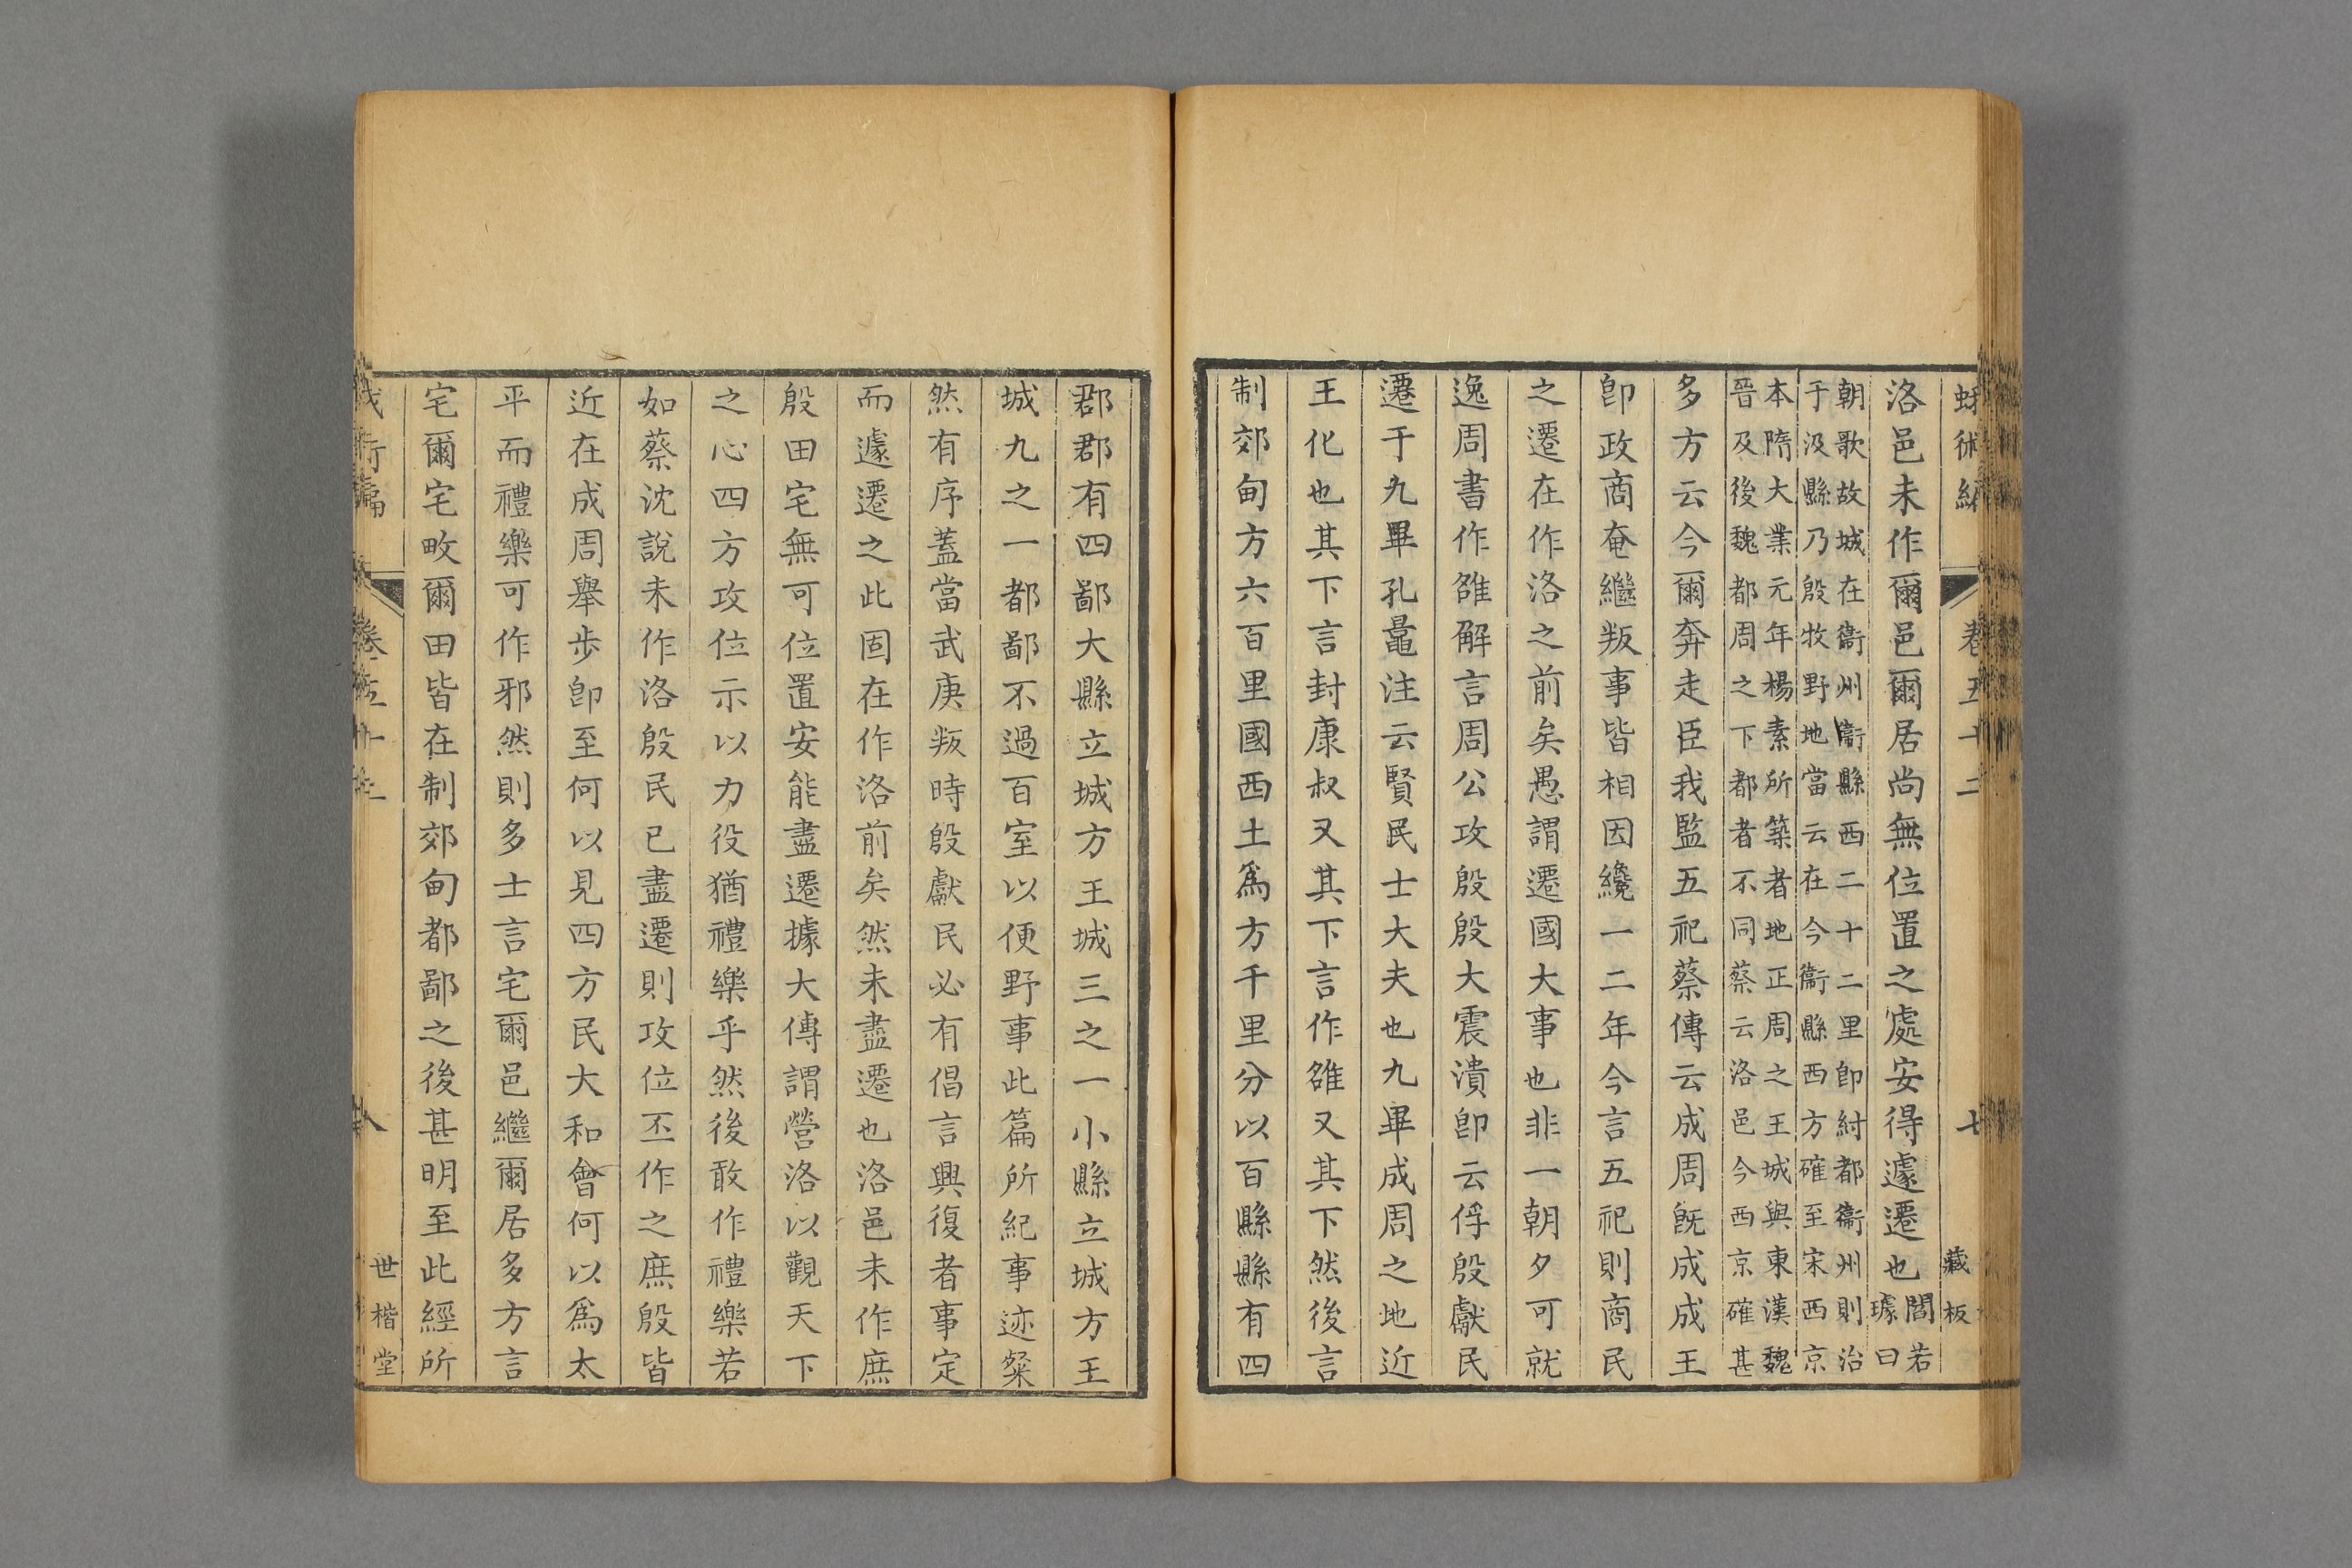 卷五十二
七
藏板
洛邑未作爾邑爾居尚無位置之處安得遽遷也閻若
璩曰
朝歌故城在衞州衞縣西二十二里卽紂都衞州則治
于汲縣乃殷牧野地當云在今衞縣西方確至宋西京
本隋大業元年楊素所築者地正周之王城與東漢魏
晉及後魏都周之下都者不同蔡云洛邑今西京確甚
多方云今爾奔走臣我監五祀蔡傳云成周旣成成王
卽政商奄繼叛事皆相因纔一二年今言五祀則商民
之遷在作洛之前矣愚謂遷國大事也非一朝夕可就
逸周書作雒解言周公攻殷殷大震潰卽云俘殷獻民
遷于九畢孔鼂注云賢民士大夫也九畢成周之地近
王化也其下言封康叔又其下言作雒又其下然後言
制郊甸方六百里國西土爲方千里分以百縣縣有四
郡郡有四鄙大縣立城方王城三之一小縣立城方王
城九之一都鄙不過百室以便野事此篇所紀事迹粲
然有序蓋當武庚叛時殷獻民必有倡言興復者事定
而遽遷之此固在作洛前矣然未盡遷也洛邑未作庶
殷田宅無可位置安能盡遷據大傳謂營洛以觀天下
之心四方攻位示以力役猶禮樂乎然後敢作禮樂若
如蔡沈說未作洛殷民已盡遷則攻位丕作之庶殷皆
近在成周舉步卽至何以見四方民大和會何以爲太
平而禮樂可作邪然則多士言宅爾邑繼爾居多方言
宅爾宅畋爾田皆在制郊甸都鄙之後甚明至此經所
八
世楷堂